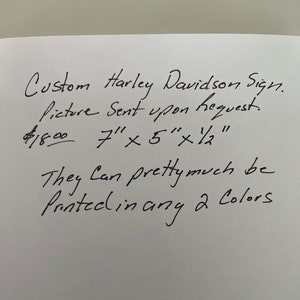 Custom Harley Davidson Sign.
Picture Sent upon Request.
$18.00 7" x 5" x 1/2"
They Can prettymuch be
Printed in any 2 Colors